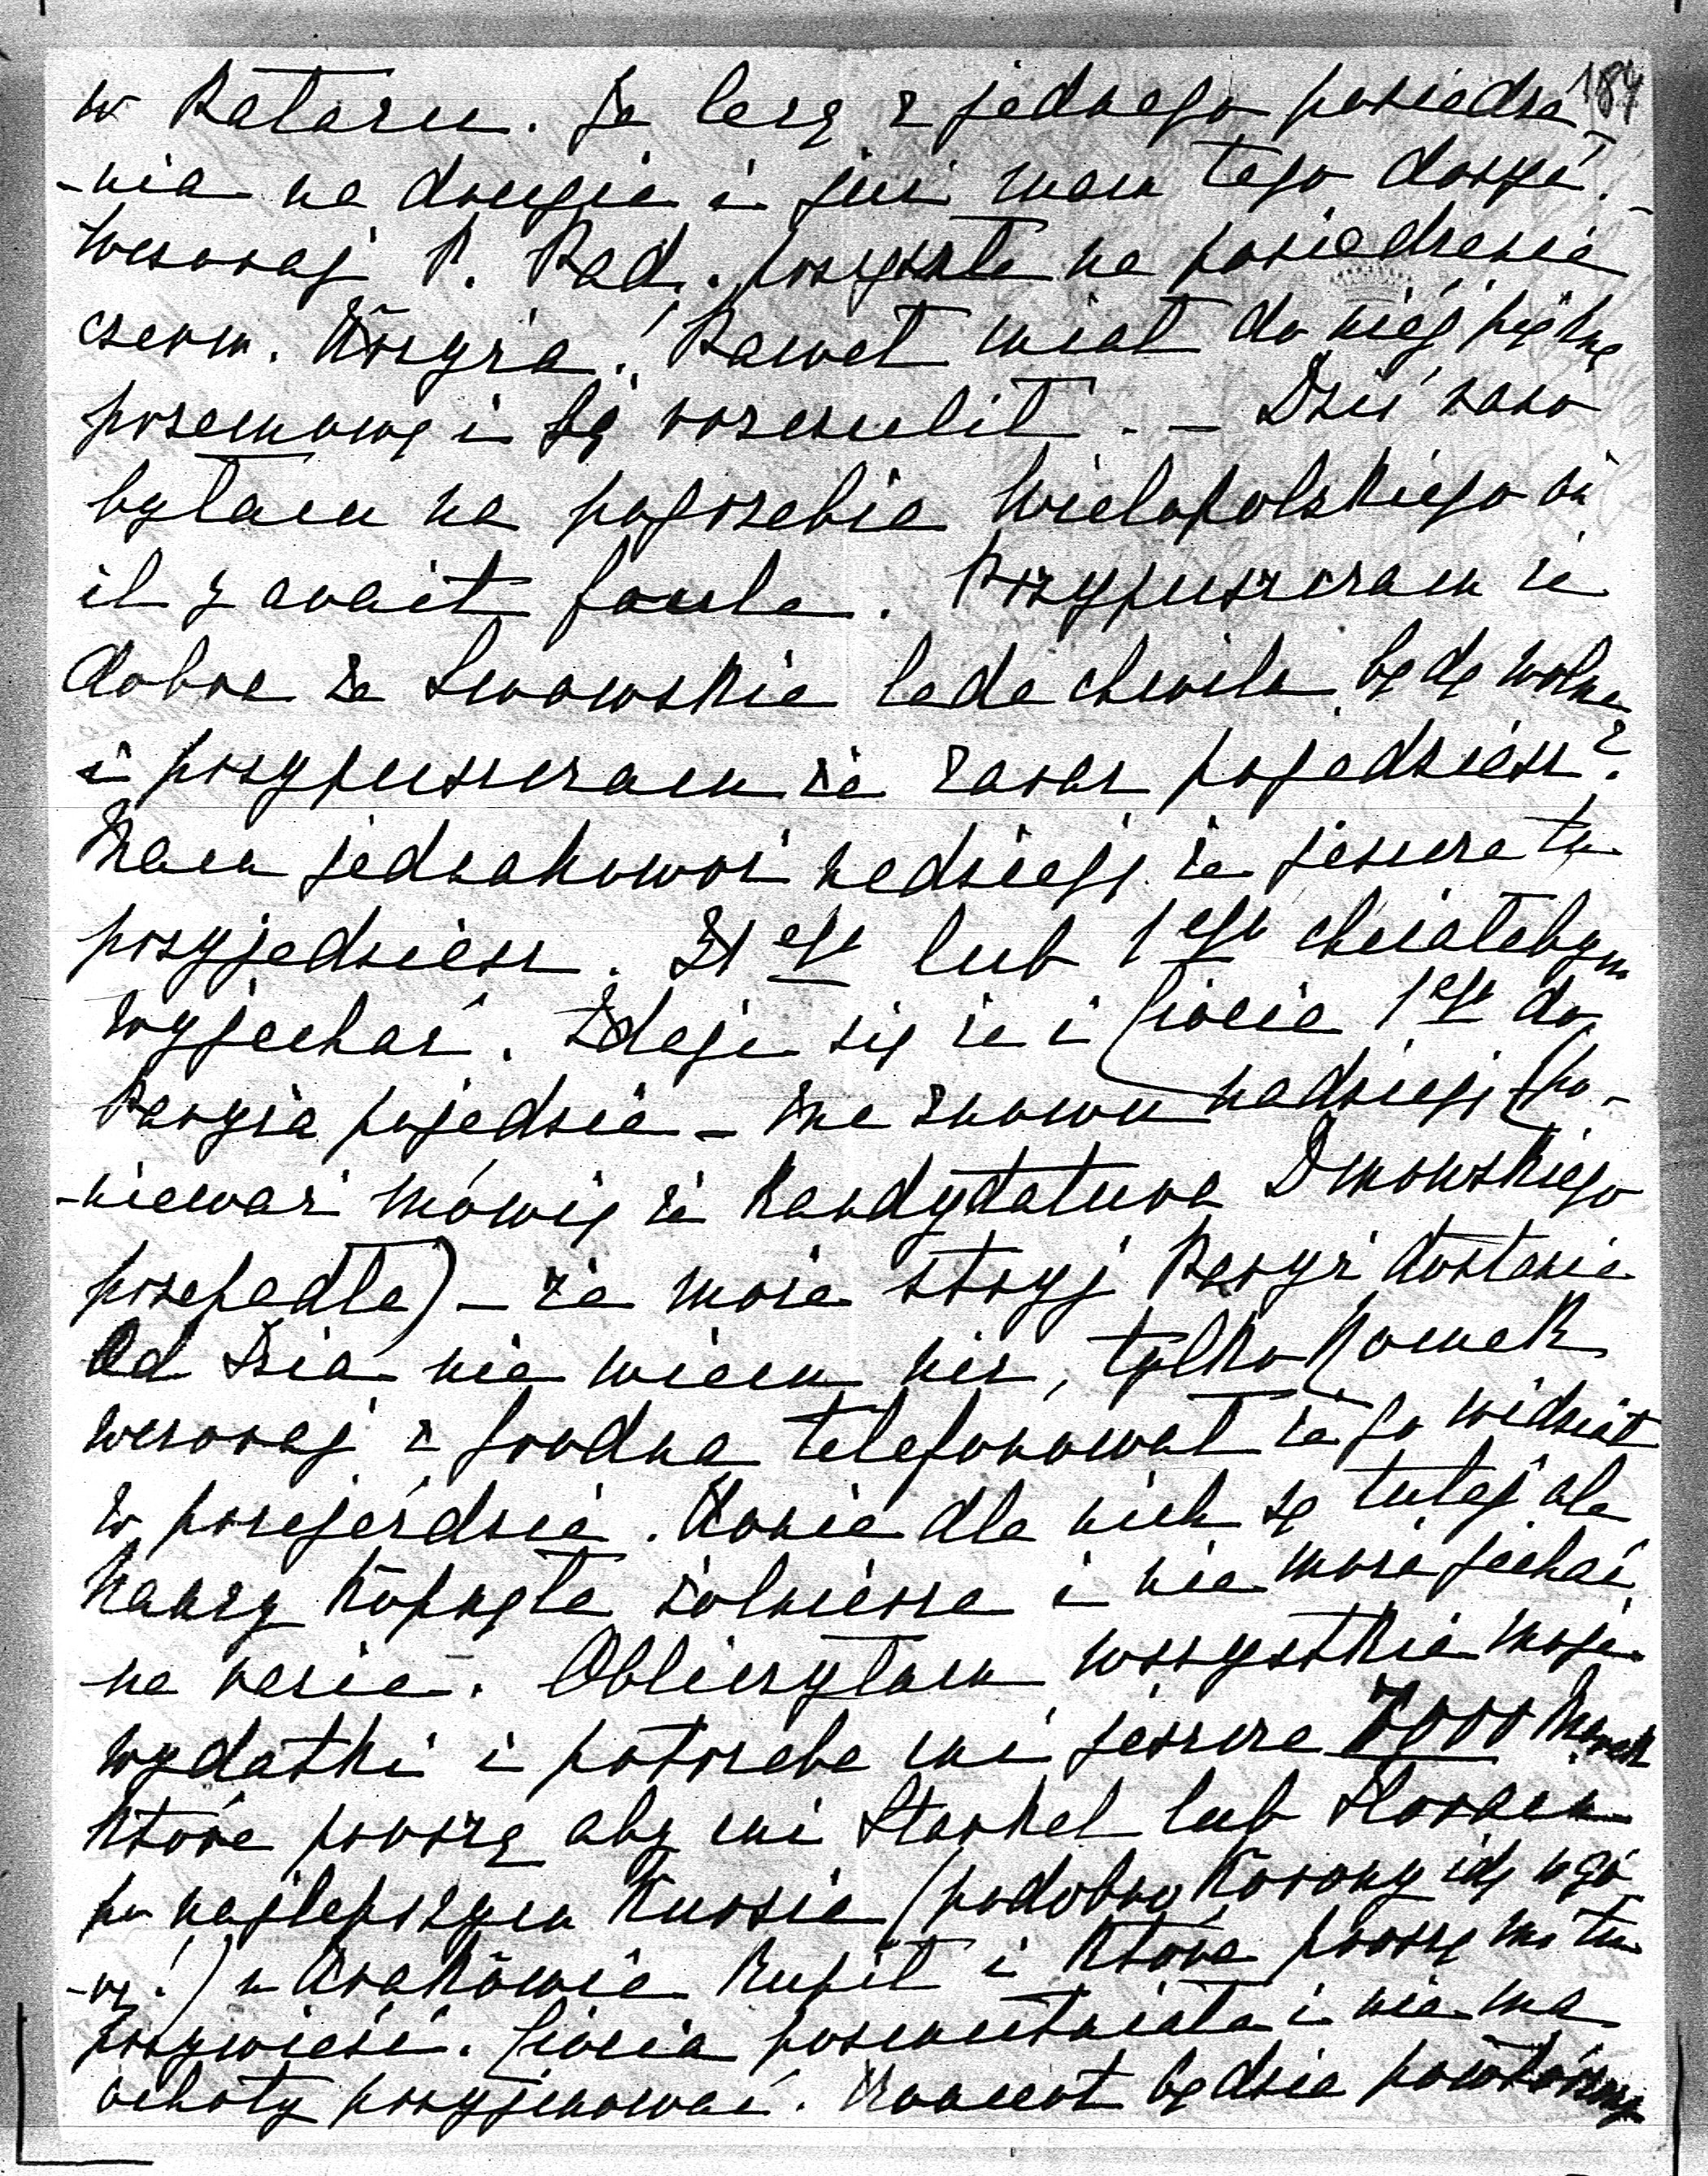 184
w Kataru. Ja lezę z jednego posiedze-
-nia na drugie i już mam tego dosyć.
Wczoraj P. Rad. przyszła na posiedzenie
czerw. Krzyża! Paweł miał do niéj piękną
przemowę i się rozczulił. – Dziś rano
byłam na pogrzebie Wielopolskiego où
il y avait foule. Przypuszczam że
dobra ze Lwowskie lada chwila będą wolne
i przypuszczam że zaraz pojedziesz?
Mam jednakowoż nadzieję że jeszcze tu
przyjedziesz. 31ego lub 1ego chciałabym
wyjechać. Zdaje się że i Ciocia 1ego do
Paryża pojedzie – ma znowu nadzieję (po-
-nieważ mówią że kandydatura Dmowskiego
przepadła) – że może stryj Paryż dostanie
Od Zzia nie wiem nic, tylko Romek
wczoraj z Grodna telefonował że go widział
w przejeździe. Konie dla nich są tutaj ale
Kanzy kopnęła żołnierza i nie może jechać
na razie. Obliczyłam wszystkie moje
wydatki i potrzeba mi jeszcze 7000 Marek
które proszę aby mi Starkel lub
po najlepszym kursie (podobno Korony idą w gó-
-rę!) w Krakowie kupił i które proszę mi tu
przywieść. Ciocia posmutniała i nie ma
ochoty przyjmować. Koncert będzie powtórzony